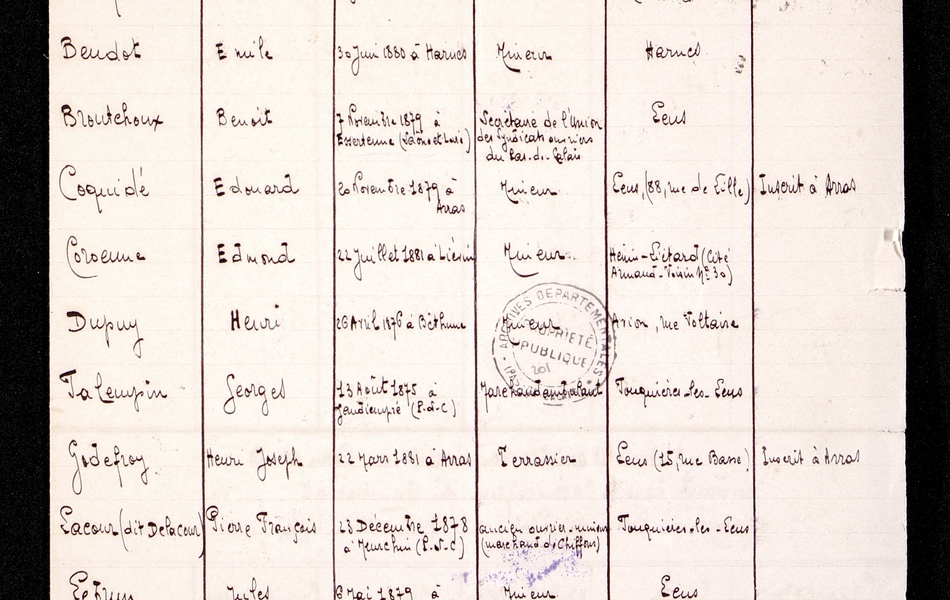 Beudot Emile 30 Juin 1880 à Harnes Mineur Harnes
Broutchoux Benoit 7 Novembre 1879 à Secrétaire de l'Union Lens
Essertenne (Saône et Loire) des Syndicats ouvriers
du Pas-de-Calais
Coquidé Edouard 20 Novembre 1879 à Mineur Lens, (88, rue de Lille) Inscrit à Arras
Arras
Coroenne Edmond 22 Juillet 1881 à Liévin Mineur Hénin-Liétard (Cité
Armand-Voisin Nº 30)
Dupuy Henri 26 Avril 1876 à Béthune Mineur Avion, rue Voltaire
ARCHIVES DEPARTEMENTALES
PROPRIETÉ
PUBLIQUE
201
Falempin Georges 13 Août 1875 à Marchand ambulant Fouquières-les-Lens
(P-d-C)
Godefroy Henri Joseph 22 Mars 1881 à Arras Terrassier Lens (15, rue Basse) Inscrit à Arras
Lacour (dit Delacour) Pierre François 23 Décembre 1878 ancien ouvrier-mineur Fouquières-les-Lens
à Meurchin (P-d-C) (marchand de Chiffons)
Jules 6 Mai 1879 à Mineur Lens